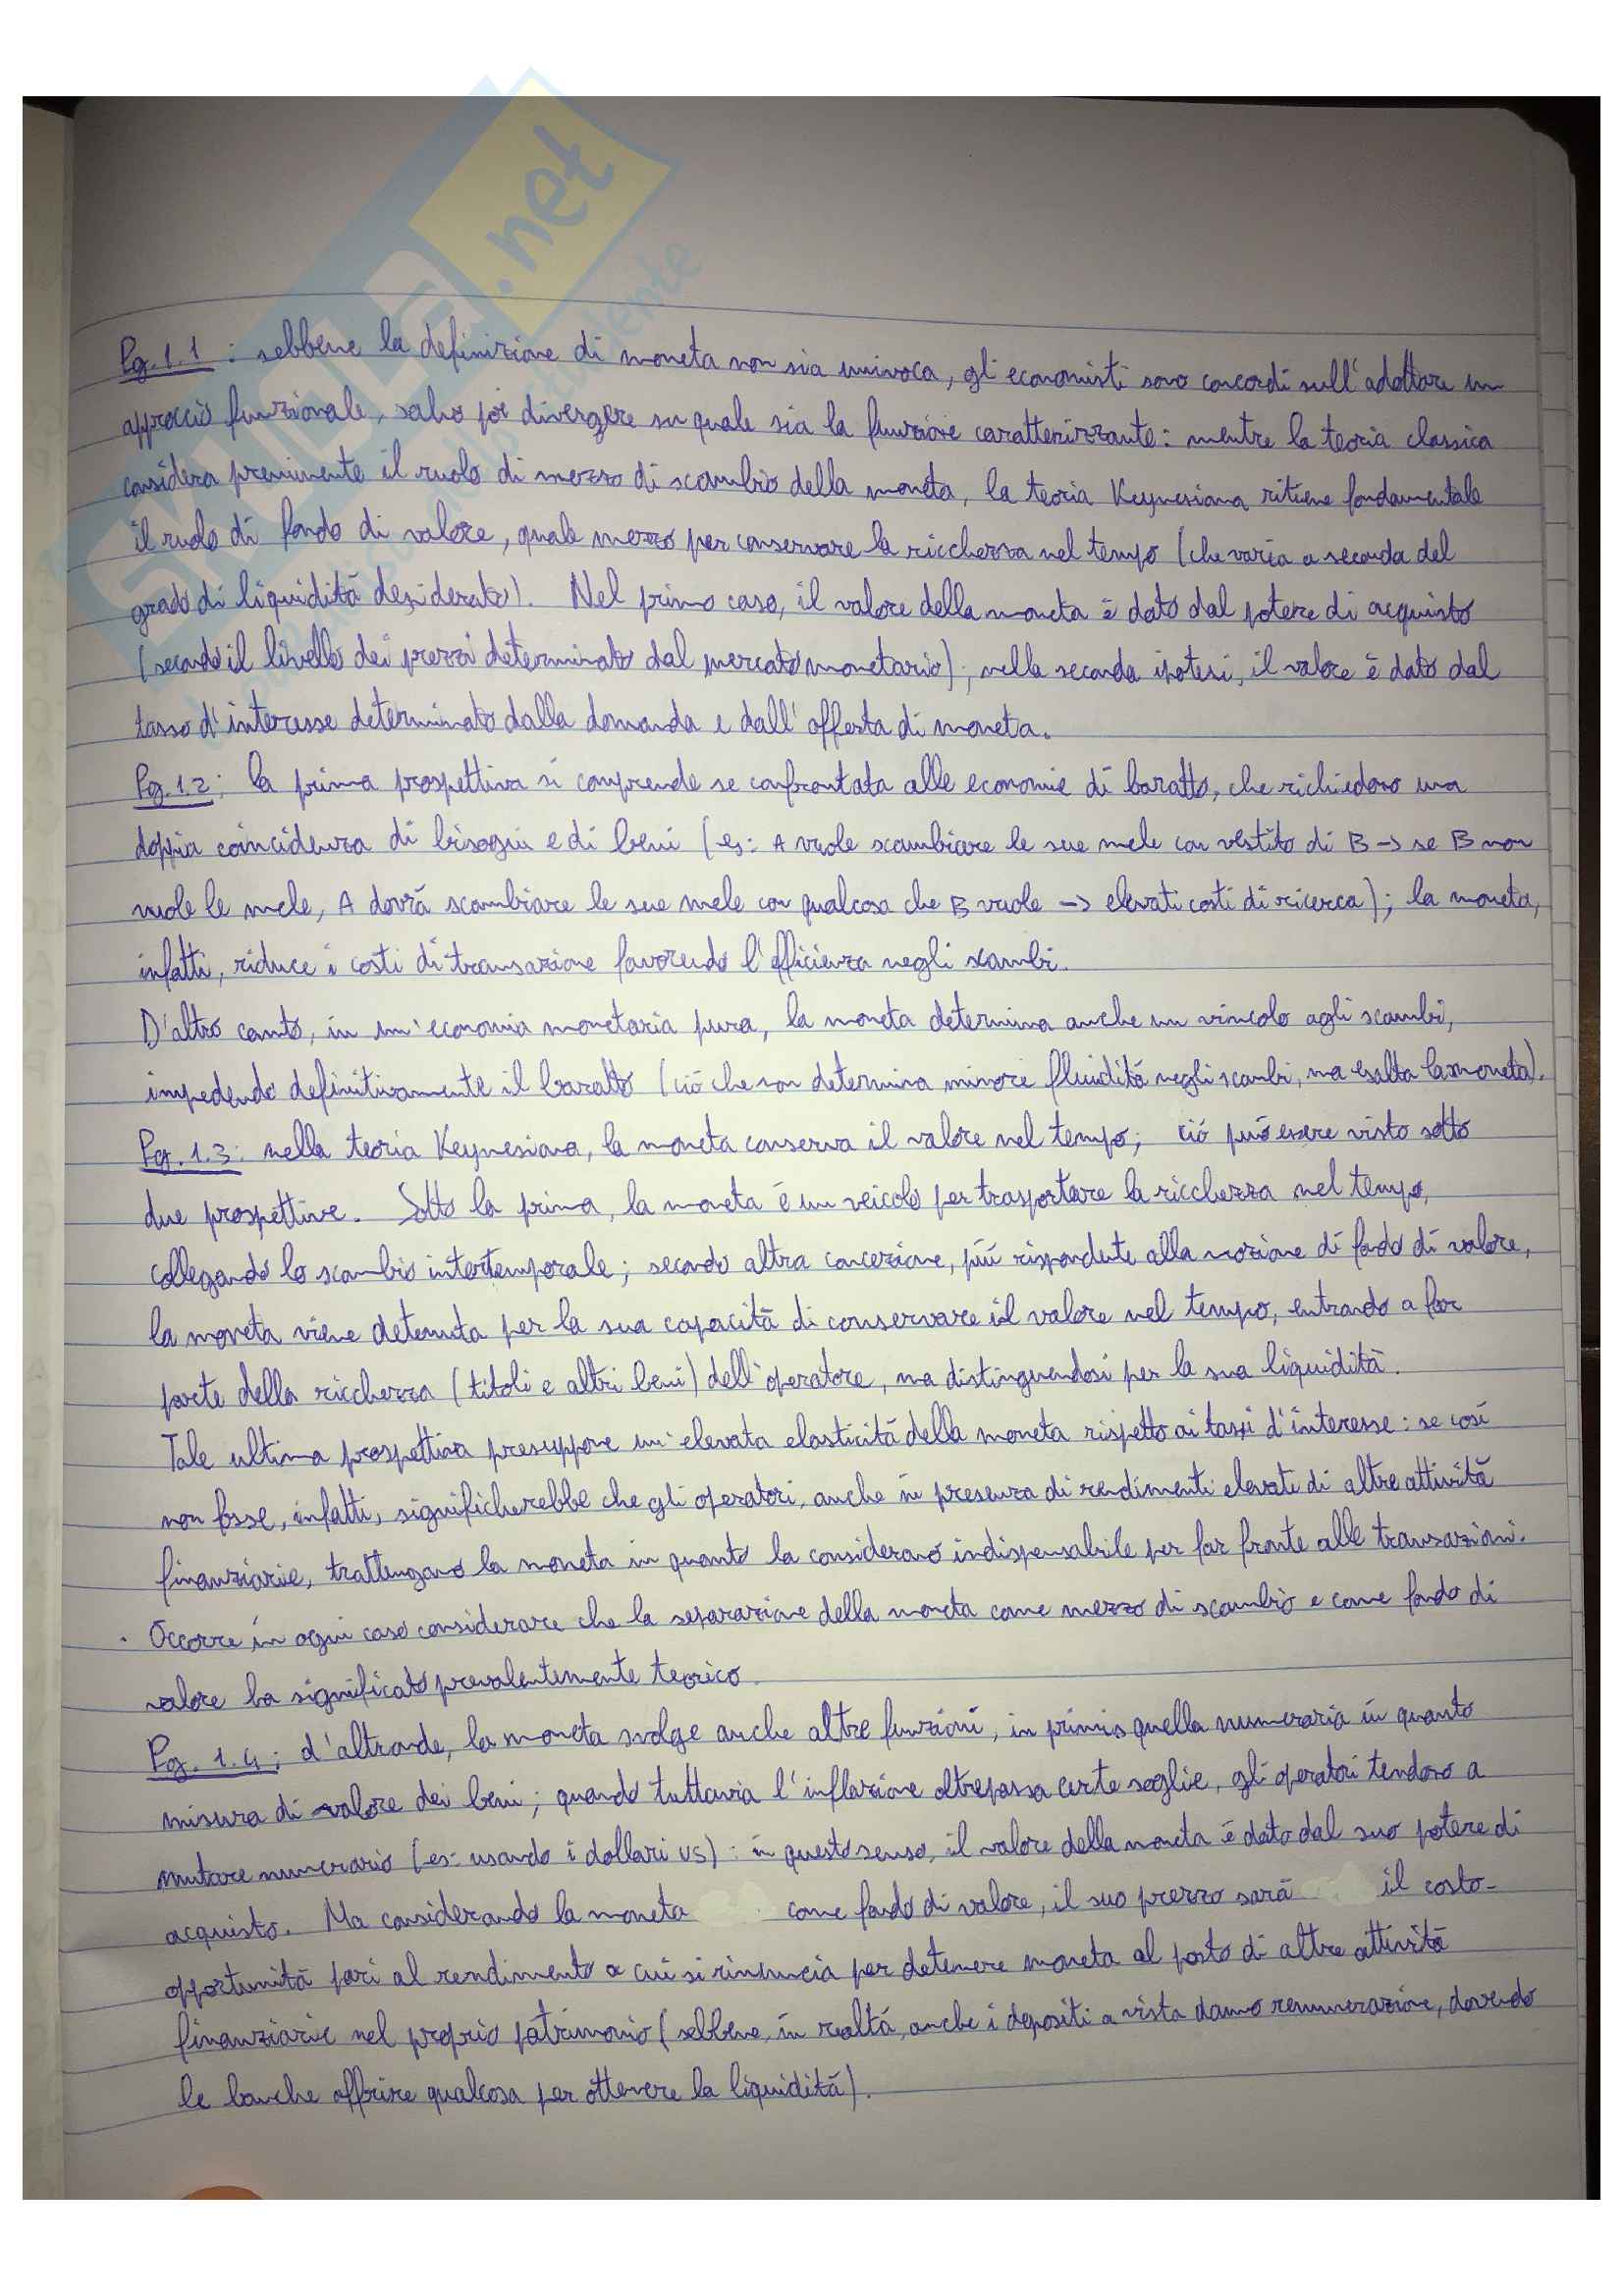 SKUOLA.net
Pg. 1.1 : sebbene la definizione di moneta non sia univoca, gli economisti sono concordi sull'adottare un
approccio funzionale, salvo poi divergere su quale sia la funzione caratterizzante: mentre la teoria classica
considera preminente il ruolo di mezzo di scambio della moneta, la teoria Keynesiana ritiene fondamentale
il ruolo di fondo di valore, quale mezzo per conservare la ricchezza nel tempo (che varia a seconda del
grado di liquidità desiderato). Nel primo caso, il valore della moneta è dato dal potere di acquisto
(secondo il livello dei prezzi determinato dal mercato monetario); nella seconda ipotesi, il valore è dato dal
tasso d'interesse determinato dalla domanda e dall'offerta di moneta.
Pg. 1.2: la prima prospettiva si comprende se confrontata alle economie di baratto, che richiedono una
doppia coincidenza di bisogni e di beni (es: A vuole scambiare le sue mele con vestito di B -> se B non
vuole le mele, A dovrà scambiare le sue mele con qualcosa che B vuole -> elevati costi di ricerca); la moneta,
infatti, riduce i costi di transazione favorendo l'efficienza negli scambi.
D'altro canto, in un'economia monetaria pura, la moneta determina anche un vincolo agli scambi,
impedendo definitivamente il baratto (ciò che non determina minore fluidità negli scambi, ma esalta la moneta).
Pg. 1.3: nella teoria Keynesiana, la moneta conserva il valore nel tempo; ciò può essere visto sotto
due prospettive. Sotto la prima, la moneta è un veicolo per trasportare la ricchezza nel tempo,
collegando lo scambio intertemporale; secondo altra concezione, più rispondente alla nozione di fondo di valore,
la moneta viene detenuta per la sua capacità di conservare il valore nel tempo, entrando a far
parte della ricchezza (titoli e altri beni) dell'operatore, ma distinguendosi per la sua liquidità.
Tale ultima prospettiva presuppone un'elevata elasticità della moneta rispetto ai tassi d'interesse: se così
non fosse, infatti, significherebbe che gli operatori, anche in presenza di rendimenti elevati di altre attività
finanziarie, trattengano la moneta in quanto la considerano indispensabile per far fronte alle transazioni.
· Occorre in ogni caso considerare che la separazione della moneta come mezzo di scambio e come fondo di
valore ha significato prevalentemente teorico.
Pg. 1.4: d'altronde, la moneta svolge anche altre funzioni, in primis quella numeraria in quanto
misura di valore dei beni; quando tuttavia l'inflazione oltrepassa certe soglie, gli operatori tendono a
mutare numerario (es: usando i dollari US): in questo senso, il valore della moneta è dato dal suo potere di
acquisto. Ma considerando la moneta come fondo di valore, il suo prezzo sarà il costo-
opportunità pari al rendimento a cui si rinuncia per detenere moneta al posto di altre attività
finanziarie nel proprio patrimonio (sebbene, in realtà, anche i depositi a vista danno remunerazione, dovendo
le banche offrire qualcosa per ottenere la liquidità).